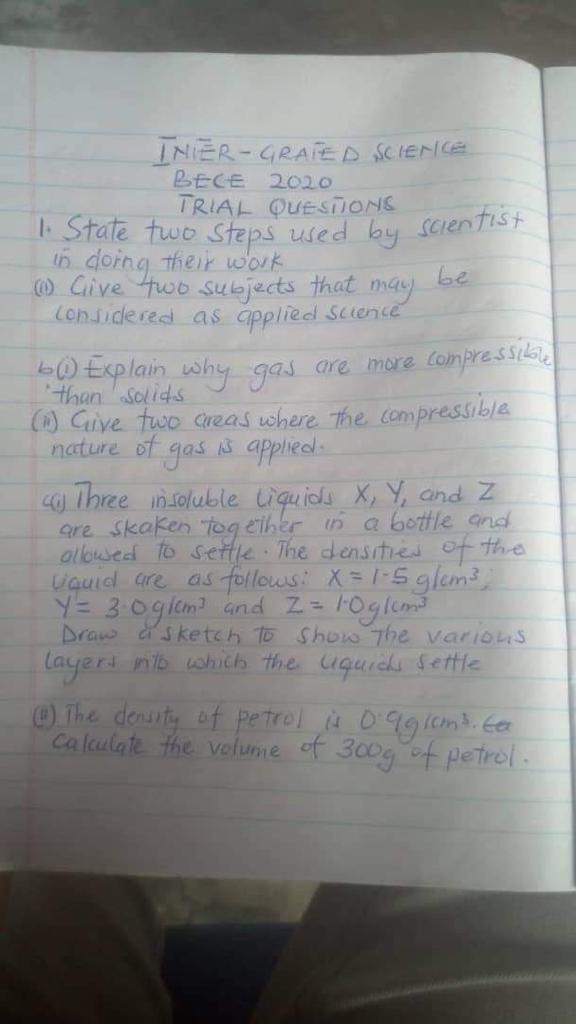 INTER-GRATED SCIENCE
BECE 2020
TRIAL QUESTIONS
1. State two steps used by scientist
in doing their work
(ii) Give two subjects that may be
considered as applied science
b(i) Explain why gas are more compressible
than solids
(ii) Give two areas where the compressible
nature of gas is applied.
c(i) Three insoluble liquids X, Y, and Z
are skaken together in a bottle and
allowed to settle. The densities of the
liquid are as follows: X = 1.5 g/cm³;
Y = 3.0g/cm³ and Z = 1.0g/cm³
Draw a sketch to show the various
layers into which the liquids settle
(ii) The density of petrol is 0.9g/cm³.
Calculate the volume of 300g of petrol.